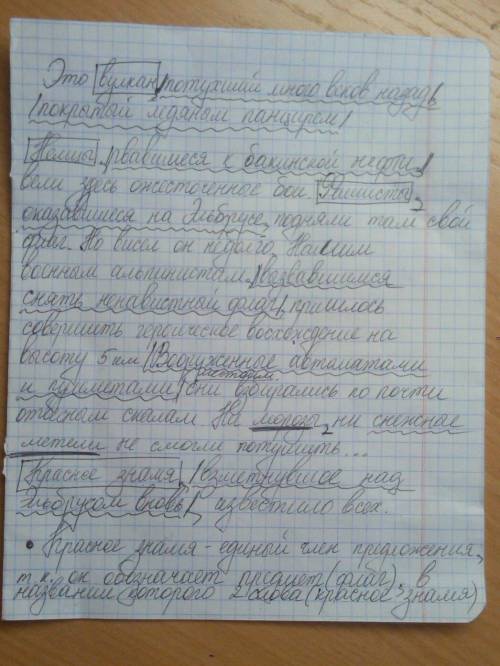 Это вулкан, потухший много веков назад,
покрытый ледяным панцирем.
Немцы, рвавшиеся к бакинской нефти,
вели здесь ожесточенные бои. Фашисты,
оказавшиеся на Эльбрусе, подняли там свой
флаг. Но висел он недолго. Нашим
военным альпинистам, вызвавшимся
снять ненавистный флаг, пришлось
совершить героическое восхождение на
высоту 5 км. Вооруженные автоматами
и пулеметами, они взбирались по почти
отвесным скалам. Ни морозы, ни снежные
метели не смогли потушить...
Красное знамя, взметнувшее над
Эльбрусом вновь, известило всех.
• Красное знамя - единый член предложения,
т.к. он обозначает предмет (флаг), в
названии которого 2 слова (красное знамя)